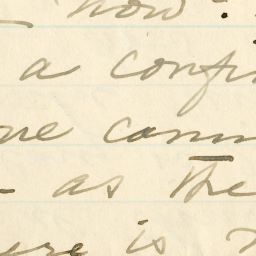 now:
a confi
ne cann
as the
ere is